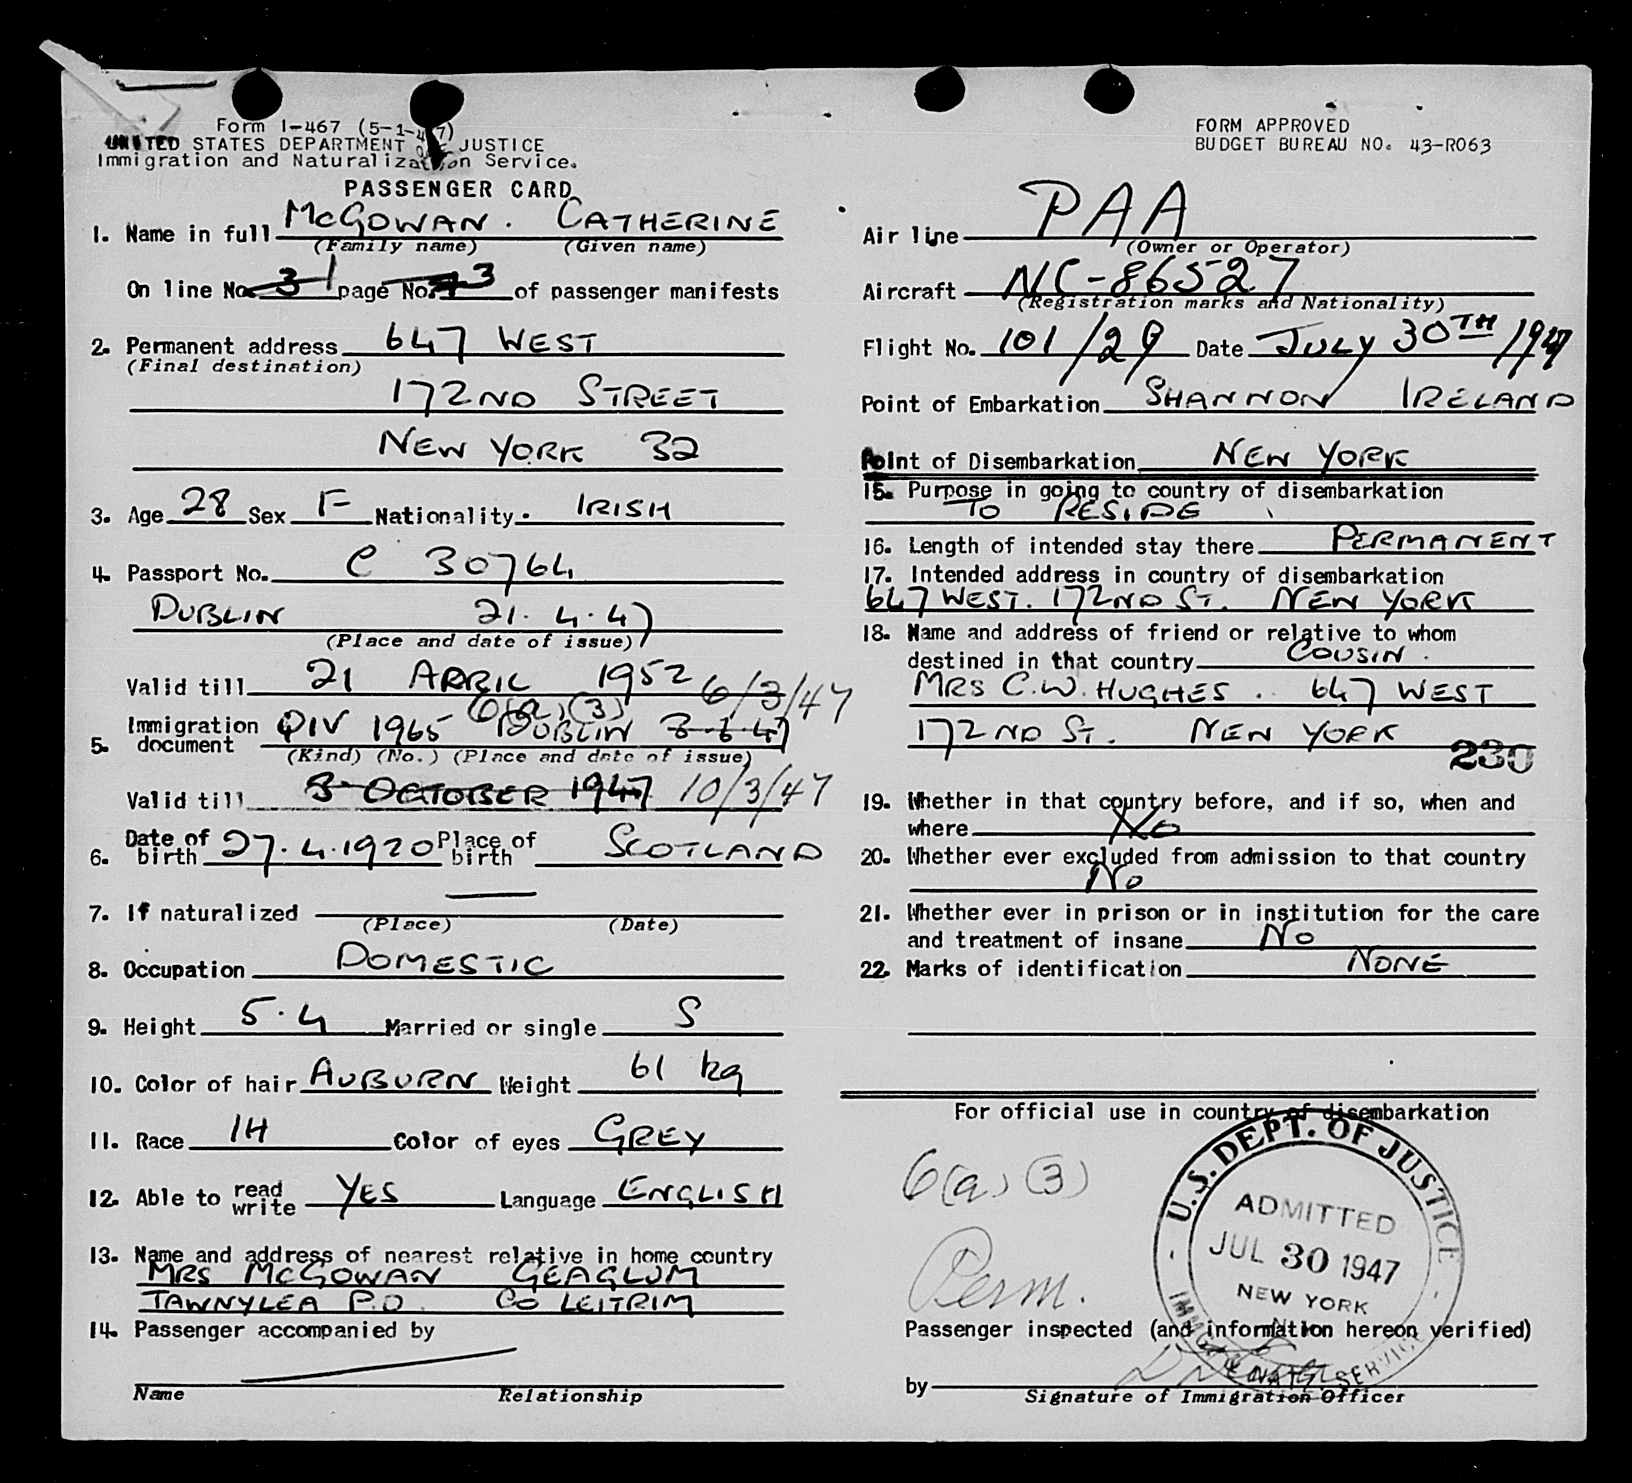 Form I-467 (5-1-47)
UNITED STATES DEPARTMENT OF JUSTICE
Immigration and Naturalization Service.
PASSENGER CARD
1. Name in full McGOWAN. CATHERINE
(Family name) (Given name)
On line No. 3 1 page No. 3 of passenger manifests
2. Permanent address 647 WEST
(Final destination)
172ND STREET
NEW YORK 32
3. Age 28 Sex F Nationality. IRISH
4. Passport No. C 30764
DUBLIN 21.4.47
(Place and date of issue)
Valid till 21 APRIL 1952 6/3/47
6(a)(3)
5. Immigration document QIV 1965 DUBLIN 3-6-47
(Kind) (No.) (Place and date of issue)
Valid till 3 OCTOBER 1947 10/3/47
6. Date of birth 27.4.1920 Place of birth SCOTLAND
7. If naturalized
(Place) (Date)
8. Occupation DOMESTIC
9. Height 5.4 Married or single S
10. Color of hair AUBURN Weight 61 kg
11. Race IH Color of eyes GREY
12. Able to read write YES Language ENGLISH
13. Name and address of nearest relative in home country
MRS McGOWAN GEAGLUM
TAWNYLEA P.O. CO LEITRIM
14. Passenger accompanied by
Name Relationship
FORM APPROVED
BUDGET BUREAU NO. 43-R063
Air line PAA
(Owner or Operator)
Aircraft NC-86527
(Registration marks and Nationality)
Flight No. 101/29 Date JULY 30TH/1947
Point of Embarkation SHANNON IRELAND
Point of Disembarkation NEW YORK
15. Purpose in going to country of disembarkation
TO RESIDE
16. Length of intended stay there PERMANENT
17. Intended address in country of disembarkation
647 WEST. 172ND ST. NEW YORK
18. Name and address of friend or relative to whom
destined in that country COUSIN.
MRS C.W. HUGHES. 647 WEST
172ND ST. NEW YORK
230
19. Whether in that country before, and if so, when and
where No
20. Whether ever excluded from admission to that country
No
21. Whether ever in prison or in institution for the care
and treatment of insane No
22. Marks of identification NONE
For official use in country of disembarkation
6(a)(3)
Perm.
U.S. DEPT. OF JUSTICE
ADMITTED
JUL 30 1947
NEW YORK
N.Y.
IMMIG. & NATZ. SERVICE
Passenger inspected (and information hereon verified)
by
Signature of Immigration Officer